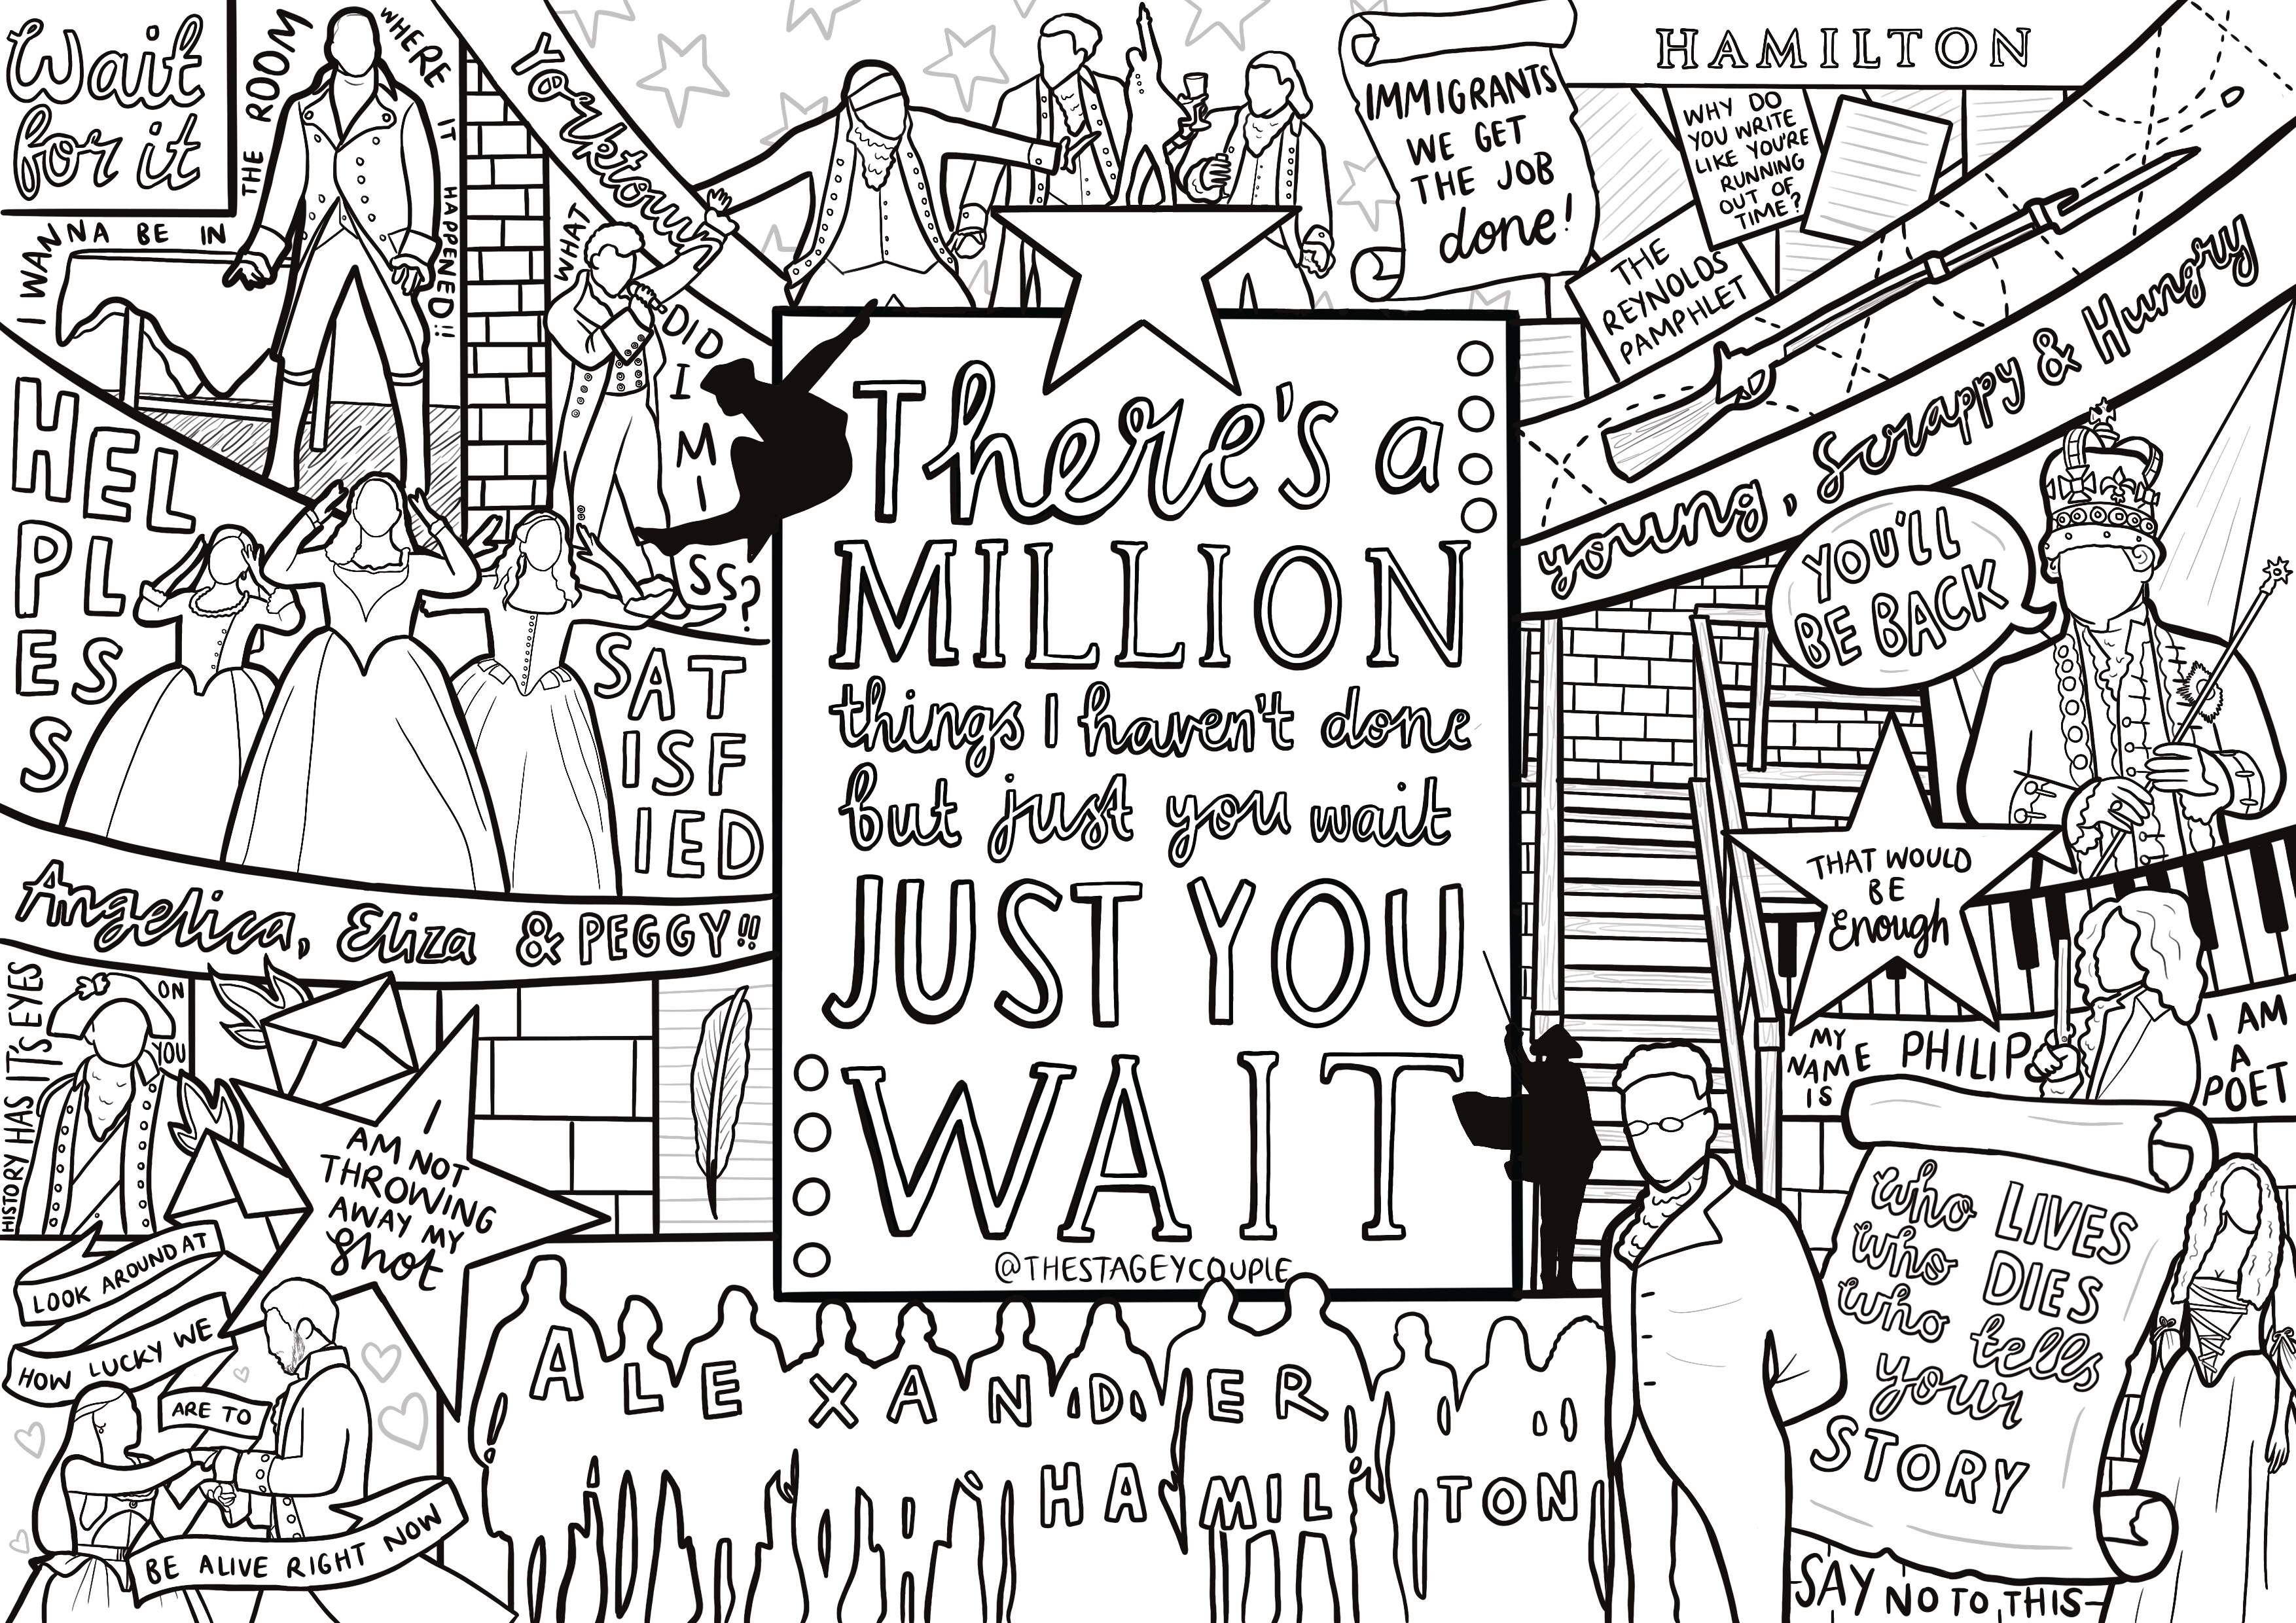 Wait
for it
I WANNA BE IN
THE ROOM
WHERE IT
HAPPENED!!
Yorktown
WHAT
DID
I
MI
SS?
IMMIGRANTS
WE GET
THE JOB
done!
HAMILTON
WHY DO
YOU WRITE
LIKE YOU'RE
RUNNING
OUT OF
TIME?
THE
REYNOLDS
PAMPHLET
young, Scrappy & Hungry
HEL
PL
ES
S
SAT
ISF
IED
Angelica, Eliza & PEGGY!!
There's a
MILLION
things I haven't done
but just you wait
JUST YOU
WAIT
@THESTAGEYCOUPLE
YOU'LL
BE BACK
THAT WOULD
BE
Enough
MY
NAME
IS
PHILIP
I AM
A
POET
HISTORY HAS IT'S EYES
ON
YOU
I
AM NOT
THROWING
AWAY MY
Shot
LOOK AROUND AT
HOW LUCKY WE
ARE TO
BE ALIVE RIGHT NOW
ALEXANDER
HAMILTON
who LIVES
who DIES
who tells
your
STORY
SAY NO TO THIS-